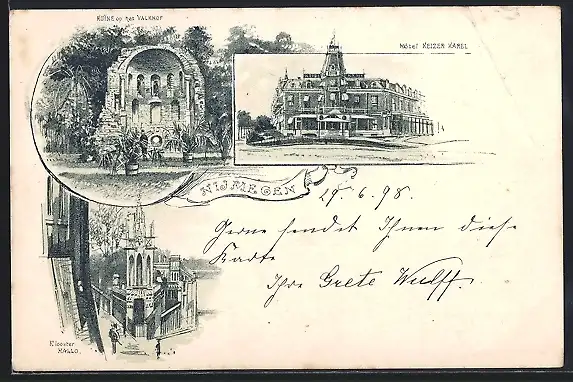 RUÏNE op het VALKHOF
Hôtel KEIZER KAREL
NIJMEGEN
29.6.98.
Gerne sendet Ihnen diese
Karte
Ihre Grete Wulff.
Klooster
MALLO.